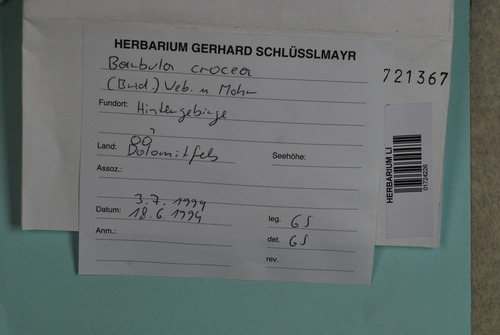 HERBARIUM GERHARD SCHLÜSSLMAYR
Barbula crocea
(Brid.) Web. u Mohr
Fundort: Hintergebirge
Land: OÖ
Dolomitfels Seehöhe:
Assoz.:
3.7.1994
Datum: 18.6.1994 leg. GS
Anm.: det. GS
rev.
721367
HERBARIUM LI
01724226